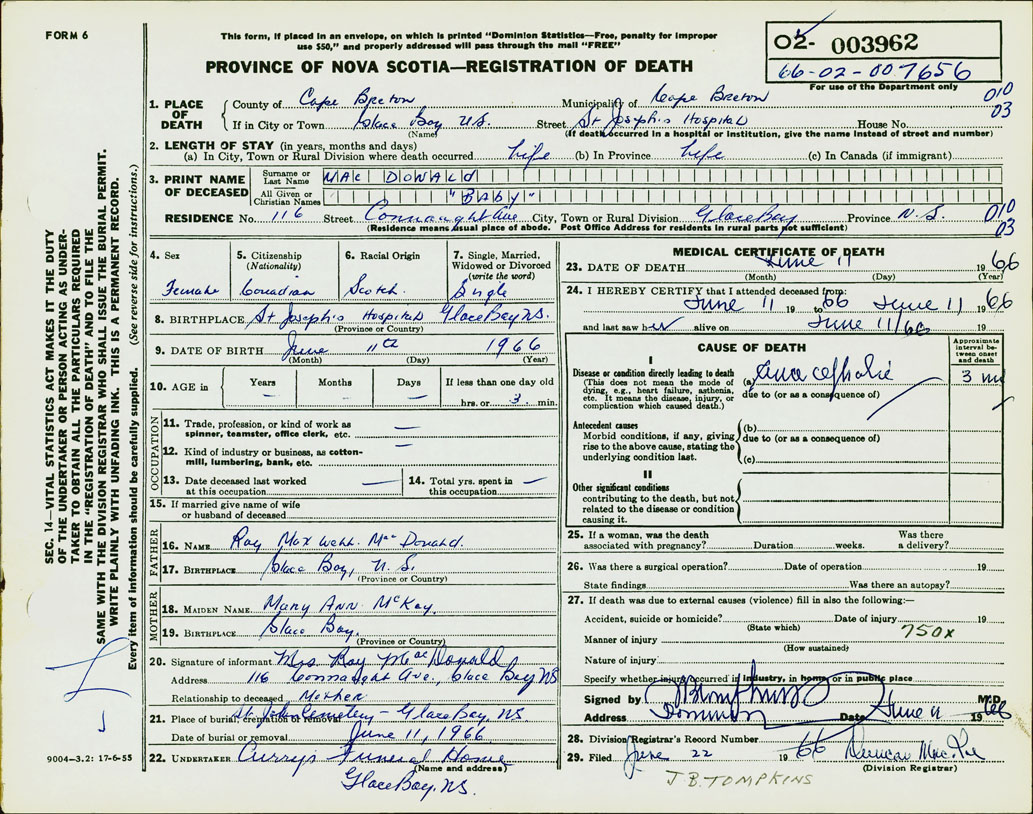 FORM 6
This form, if placed in an envelope, on which is printed "Dominion Statistics—Free, penalty for improper
use $50," and properly addressed will pass through the mail "FREE"
PROVINCE OF NOVA SCOTIA—REGISTRATION OF DEATH
02- 003962
66-02-007656
For use of the Department only
010
03
1. PLACE OF DEATH
County of Cape Breton Municipality of Cape Breton
If in City or Town Glace Bay N.S. Street St Joseph's Hospital House No.
(Name) (If death occurred in a hospital or institution, give the name instead of street and number)
2. LENGTH OF STAY (in years, months and days)
(a) In City, Town or Rural Division where death occurred life (b) In Province life (c) In Canada (if immigrant)
3. PRINT NAME OF DECEASED
Surname or Last Name MAC DONALD
All Given or Christian Names "BABY"
RESIDENCE No. 116 Street Connaught Ave City, Town or Rural Division Glace Bay Province N.S.
010
03
(Residence means usual place of abode. Post Office Address for residents in rural parts not sufficient)
4. Sex
Female
5. Citizenship
(Nationality)
Canadian
6. Racial Origin
Scotch
7. Single, Married,
Widowed or Divorced
(write the word)
Single
8. BIRTHPLACE St Joseph's Hospital Glace Bay N.S.
(Province or Country)
9. DATE OF BIRTH June 11th 1966
(Month) (Day) (Year)
10. AGE in
Years
—
Months
—
Days
—
If less than one day old
hrs. or 3 min.
OCCUPATION
11. Trade, profession, or kind of work as
spinner, teamster, office clerk, etc. —
12. Kind of industry or business, as cotton-
mill, lumbering, bank, etc. —
13. Date deceased last worked
at this occupation —
14. Total yrs. spent in
this occupation —
15. If married give name of wife
or husband of deceased
FATHER
16. NAME Roy Max Mac Donald
17. BIRTHPLACE Glace Bay, N.S.
(Province or Country)
MOTHER
18. MAIDEN NAME Mary Ann McKay
19. BIRTHPLACE Glace Bay
(Province or Country)
20. Signature of informant Mrs. Roy Mac Donald
Address 116 Connaught Ave., Glace Bay NS
Relationship to deceased Mother
21. Place of burial, cremation or removal St. John Cemetery - Glace Bay, NS
Date of burial or removal June 11, 1966
22. UNDERTAKER Curry's Funeral Home
(Name and address)
Glace Bay, NS.
MEDICAL CERTIFICATE OF DEATH
23. DATE OF DEATH June 11 1966
(Month) (Day) (Year)
24. I HEREBY CERTIFY that I attended deceased from:
June 11 1966 to June 11 1966
and last saw her alive on June 11/66 19
CAUSE OF DEATH
Approximate
interval be-
tween onset
and death
I
Disease or condition directly leading to death
(This does not mean the mode of
dying, e.g., heart failure, asthenia,
etc. It means the disease, injury, or
complication which caused death.)
(a) 3 mi
due to (or as a consequence of)
Antecedent causes
Morbid conditions, if any, giving
rise to the above cause, stating the
underlying condition last.
(b)
due to (or as a consequence of)
(c)
II
Other significant conditions
contributing to the death, but not
related to the disease or condition
causing it.
25. If a woman, was the death
associated with pregnancy? Duration weeks. Was there
a delivery?
26. Was there a surgical operation? Date of operation 19
State findings Was there an autopsy?
27. If death was due to external causes (violence) fill in also the following:—
Accident, suicide or homicide? Date of injury 19
(State which)
750X
Manner of injury
(How sustained)
Nature of injury
Specify whether injury occurred in industry, in home or in public place
Signed by M.D.
Address Dominion Date June 11 1966
28. Division Registrar's Record Number
29. Filed June 22 1966
(Division Registrar)
J.B. TOMPKINS
SEC. 14—VITAL STATISTICS ACT MAKES IT THE DUTY
OF THE UNDERTAKER OR PERSON ACTING AS UNDER-
TAKER TO OBTAIN ALL THE PARTICULARS REQUIRED
IN THE "REGISTRATION OF DEATH" AND TO FILE THE
SAME WITH THE DIVISION REGISTRAR WHO SHALL ISSUE THE BURIAL PERMIT.
WRITE PLAINLY WITH UNFADING INK. THIS IS A PERMANENT RECORD.
Every item of information should be carefully supplied. (See reverse side for instructions.)
9004—3.2: 17-6-55